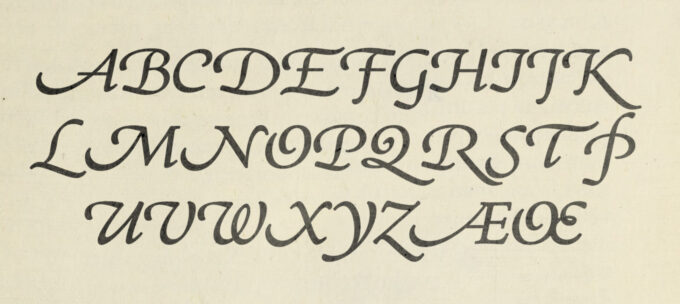 ABCDEFGHIJK
LMNOPQRSTÞ
UVWXYZÆŒ